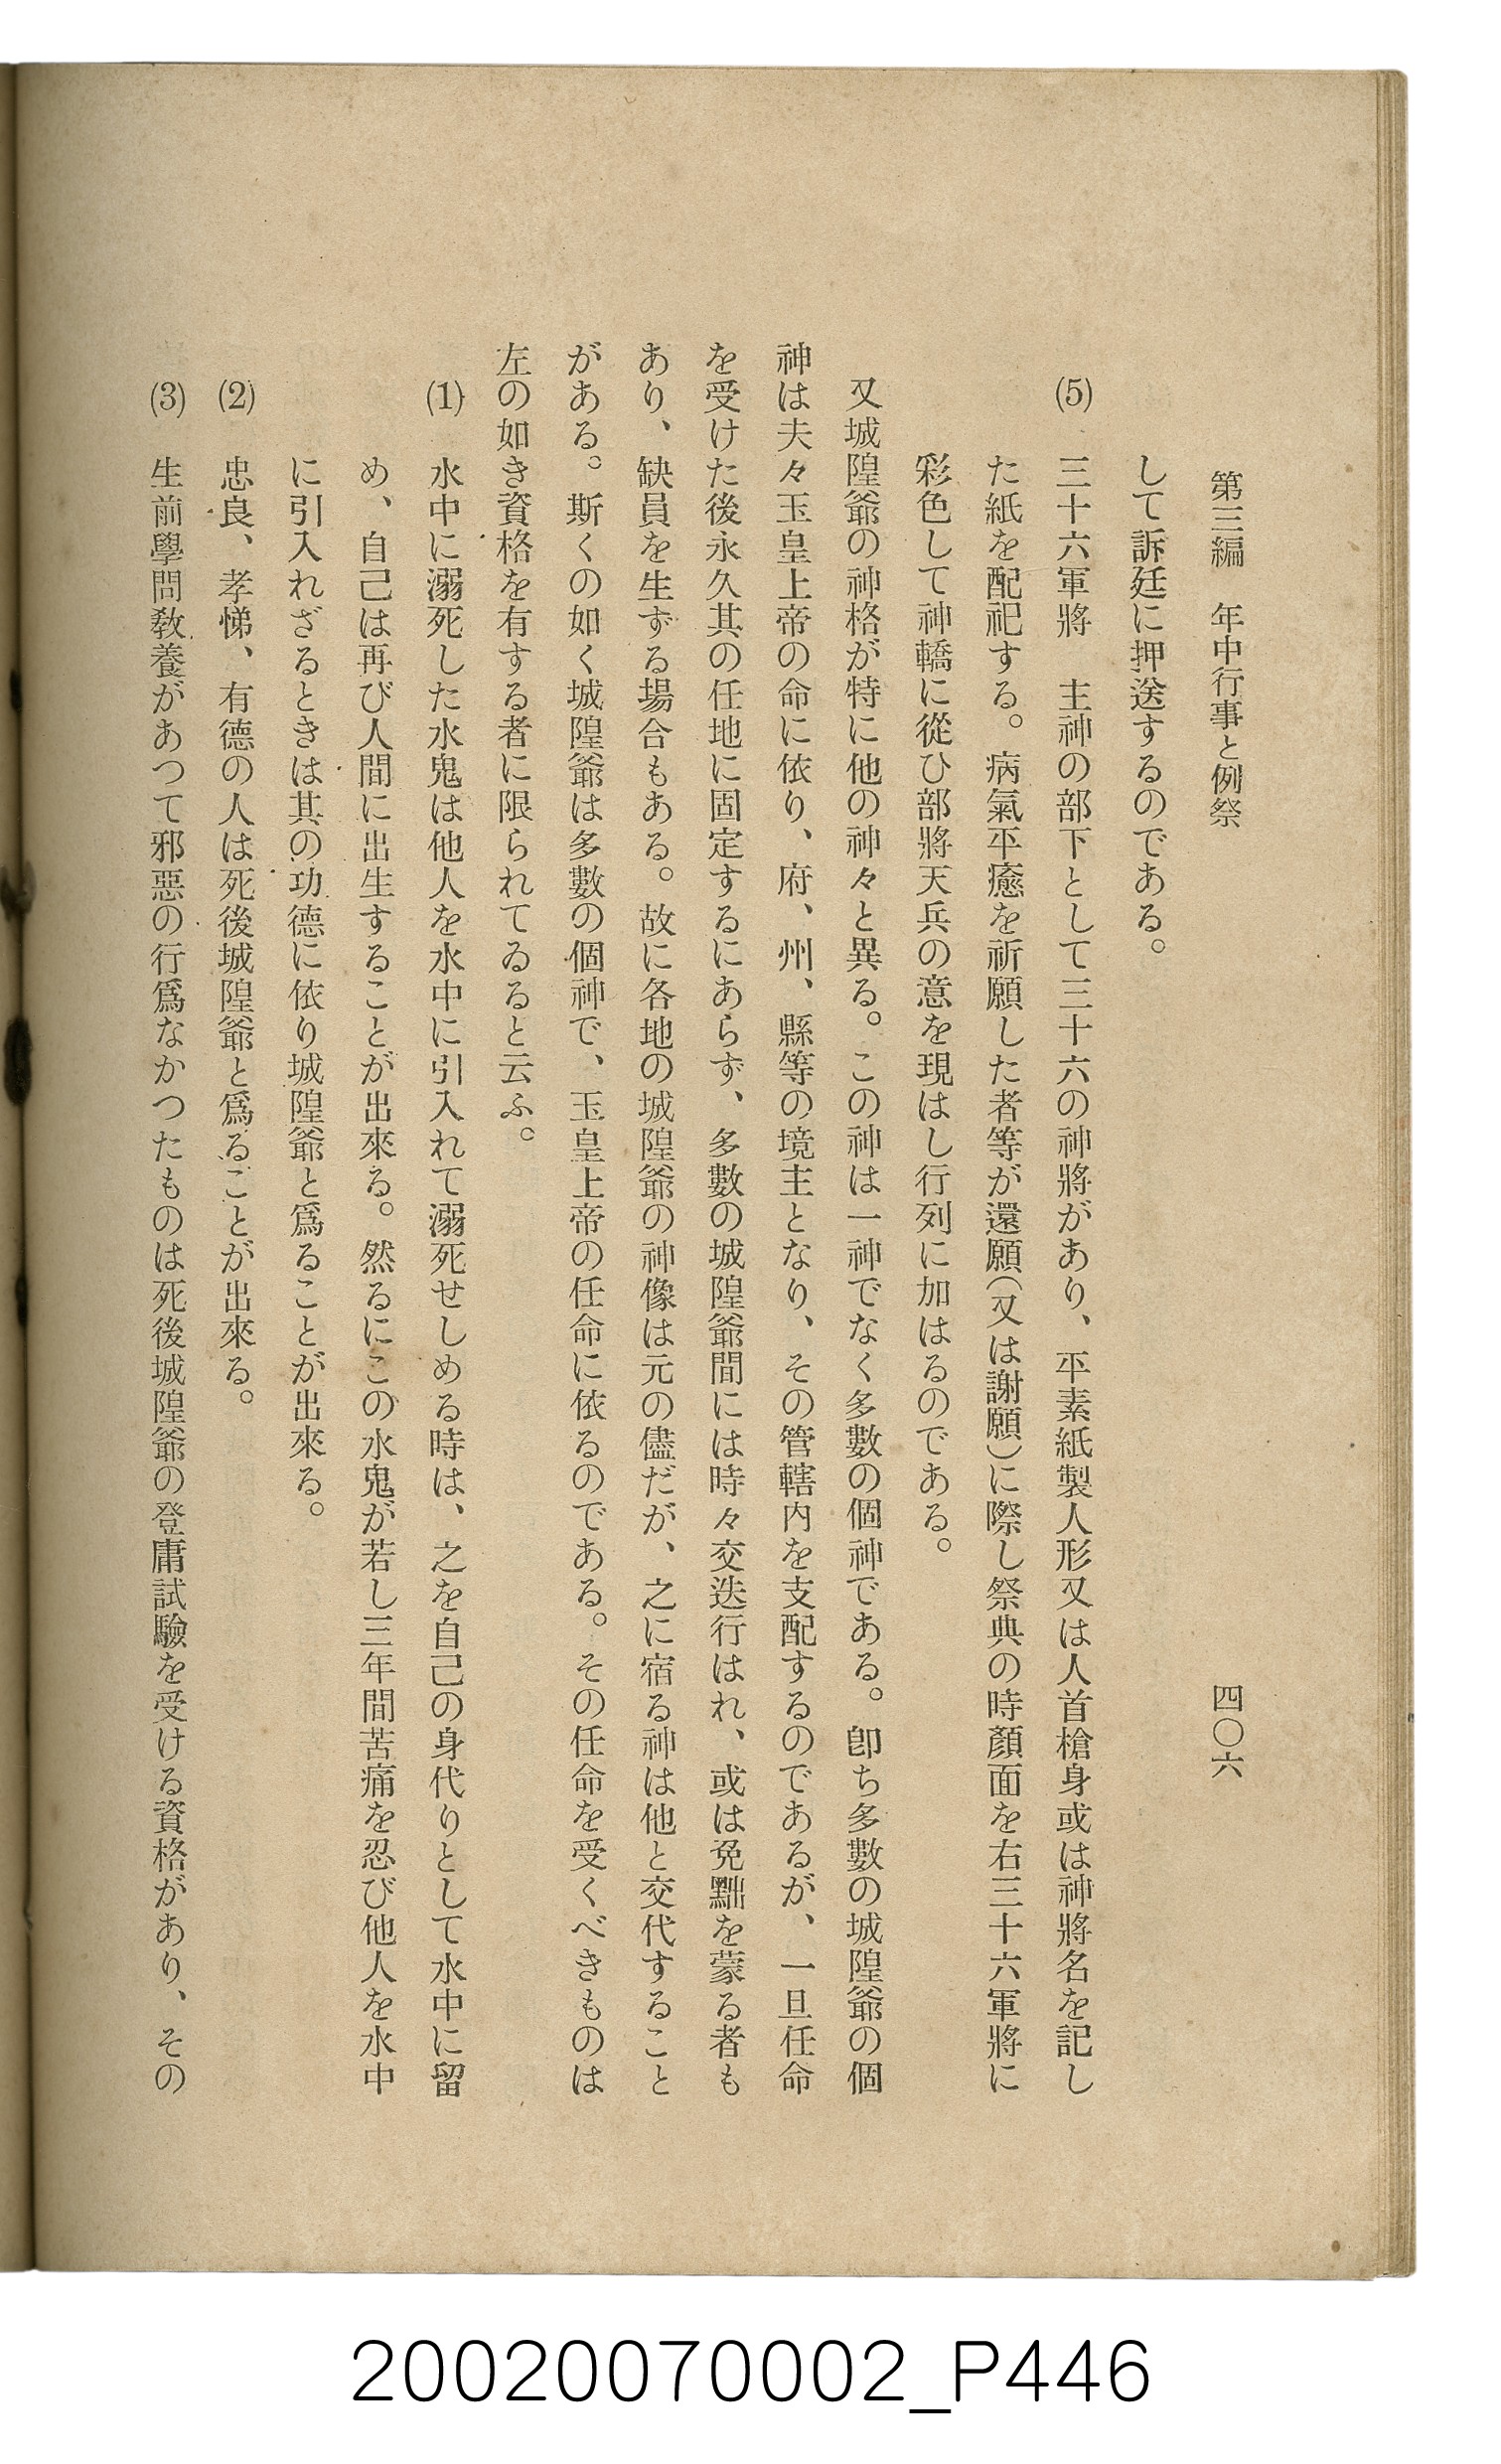 第三編　年中行事と例祭　四〇六
して訴廷に押送するのである。
(5)　三十六軍將　主神の部下として三十六の神將があり、平素紙製人形又は人首槍身或は神將名を記し
た紙を配祀する。病氣平癒を祈願した者等が還願（又は謝願）に際し祭典の時顏面を右三十六軍將に
彩色して神轎に從ひ部將天兵の意を現はし行列に加はるのである。
又城隍爺の神格が特に他の神々と異る。この神は一神でなく多數の個神である。卽ち多數の城隍爺の個
神は夫々玉皇上帝の命に依り、府、州、縣等の境主となり、その管轄内を支配するのであるが、一旦任命
を受けた後永久其の任地に固定するにあらず、多數の城隍爺間には時々交迭行はれ、或は免黜を蒙る者も
あり、缺員を生ずる場合もある。故に各地の城隍爺の神像は元の儘だが、之に宿る神は他と交代すること
がある。斯くの如く城隍爺は多數の個神で、玉皇上帝の任命に依るのである。その任命を受くべきものは
左の如き資格を有する者に限られてゐると云ふ。
(1)　水中に溺死した水鬼は他人を水中に引入れて溺死せしめる時は、之を自己の身代りとして水中に留
め、自己は再び人間に出生することが出來る。然るにこの水鬼が若し三年間苦痛を忍び他人を水中
に引入れざるときは其の功德に依り城隍爺と爲ることが出來る。
(2)　忠良、孝悌、有德の人は死後城隍爺と爲ることが出來る。
(3)　生前學問敎養があつて邪惡の行爲なかつたものは死後城隍爺の登庸試驗を受ける資格があり、その
20020070002_P446